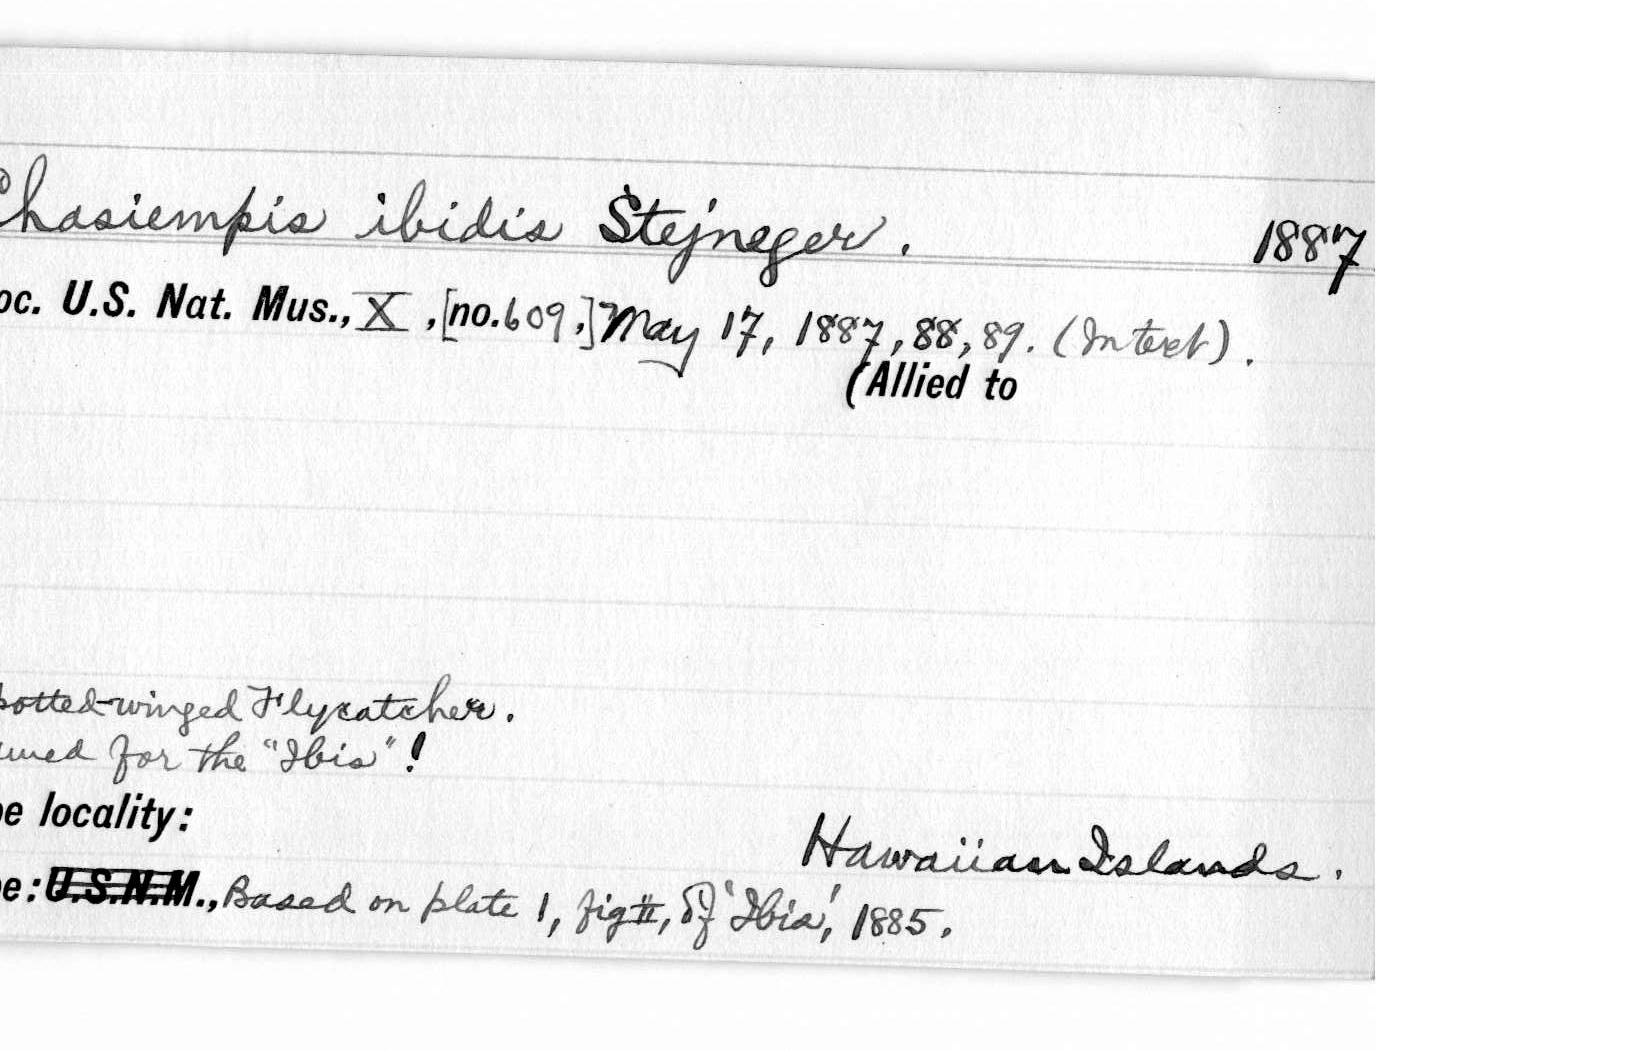 Chasiempis ibidis Stejneger. 1887
oc. U.S. Nat. Mus., X, [no. 609,] May 17, 1887, 88, 89. (In text).
(Allied to
potted-winged Flycatcher.
amed for the "Ibis"!
pe locality: Hawaiian Islands.
pe: U.S.N.M., Based on plate 1, fig II, of 'Ibis', 1885.